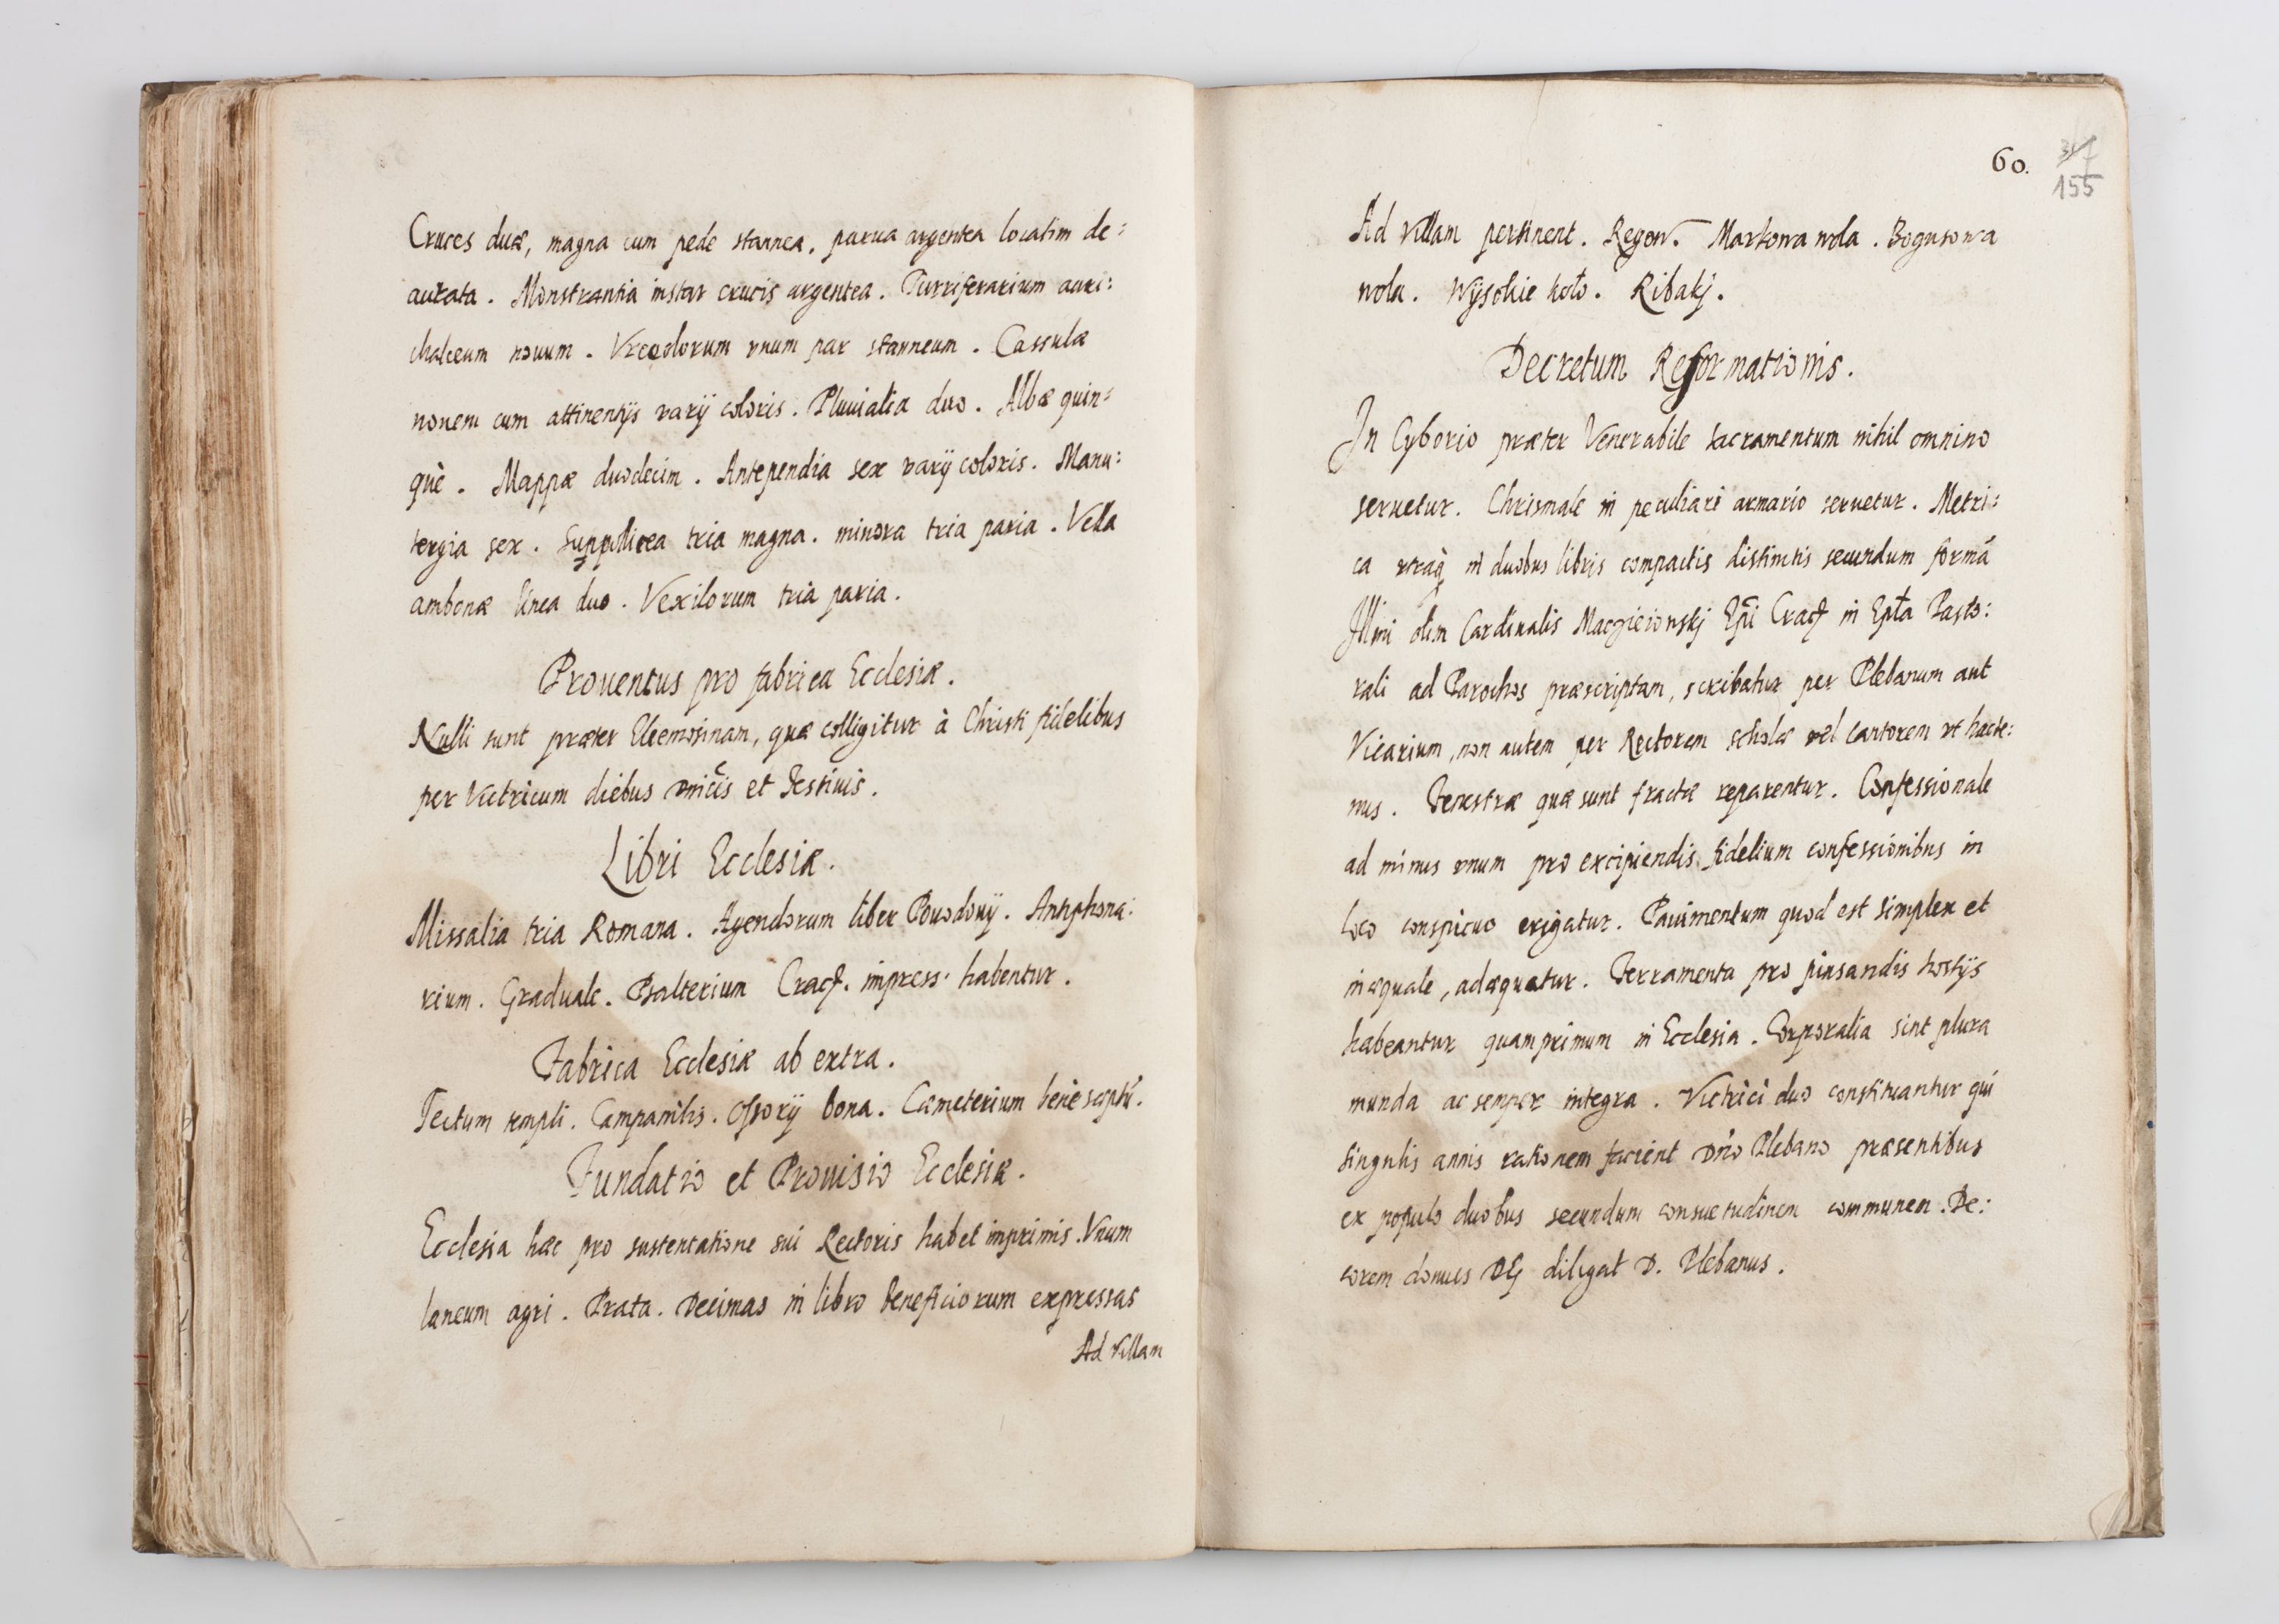 Cruces duæ, magna cum pede stannea, parua argentea locatim de:
aurata. Monstrantia instar crucis argentea. Turriferarium auri:
chalceum nouum. Vrceolorum vnum par stanneum. Cassulæ
nouem cum attinentijs varij coloris. Pluuialia duo. Albæ quin:
què. Mappæ duodecim. Antependia sex varij coloris. Manu:
tergia sex. Suppellicea tria magna. minora tria paria. Vella
ambonæ linea duo. Vexilorum tria paria.
Prouentus pro fabrica Ecclesiæ.
Nulli sunt præter Eleemosinam, quæ colligitur à Christi fidelibus
per Victricum diebus Dnicis et Festiuis.
Libri Ecclesiæ.
Missalia tria Romana. Agendorum liber Pouodouij. Antiphona:
rium. Graduale. Psalterium Crac. impress. habentur.
Fabrica Ecclesiæ ab extra.
Tectum templi. Campanilis. Ossorij bona. Cæmeterium benè septũ.
Fundatio et Prouisio Ecclesiæ.
Ecclesia hæc pro sustentatione sui Rectoris habet imprimis. Vnum
laneum agri. Prata. Decimas in libro beneficiorum expressas
Ad villam
60.
155
Ad villam pertinent. Regow. Markowa wola. Bogusowa
wola. Wysokie koło. Ribakj.
Decretum Reformationis.
In Cyborio præter Venerabile Sacramentum nihil omnino
seruetur. Chrismale in peculiari armario seruetur. Metri:
ca vtraq in duobus libris compactis distinctis secundum formã
Illmi olim Cardinalis Maczieiowskj Epi Crac in Epla Pasto:
rali ad Parochos præscriptam, scribatur per Plebanum aut
Vicarium, non autem per Rectorem scholæ vel Cantorem vt hacte:
nus. Fenestræ quæ sunt fractæ reparentur. Confessionale
ad minus vnum pro excipiendis fidelium confessionibus in
loco conspicuo erigatur. Pauimentum quod est simplex et
inæquale, adæquatur. Ferramenta pro pinsandis hostijs
habeantur quamprimum in Ecclesia. Corporalia sint plura
munda ac semper integra. Victrici duo constituantur qui
singulis annis rationem facient Dno Plebano præsentibus
ex populo duobus secundum consuetudinem communem. De:
corem domus DEj diligat D. Plebanus.